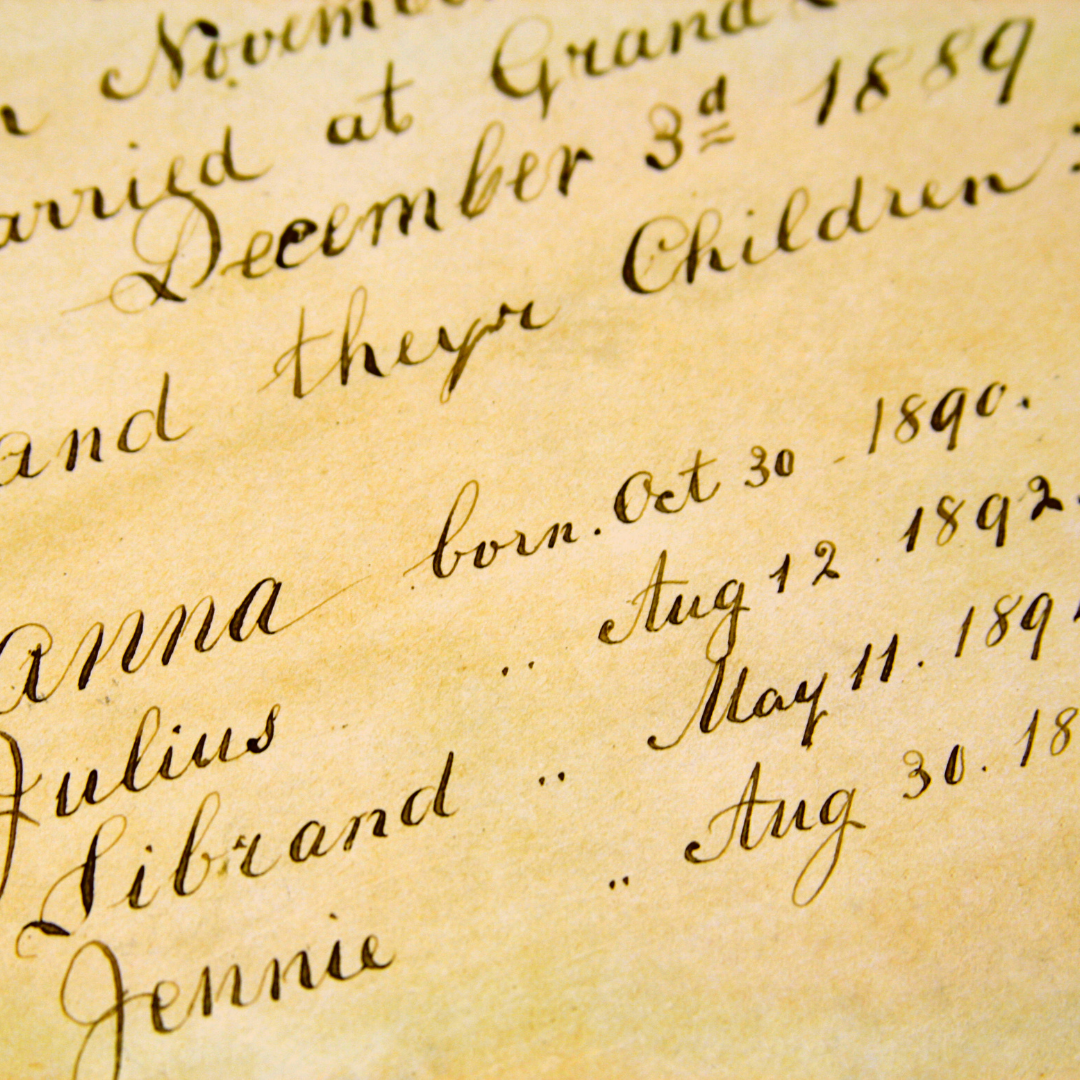 Novem
arried at Grand
December 3d 1889
and theyr Children :
anna born. Oct 30 - 1890.
Julius " Aug 12 1892.
Sibrand " May 11. 189
Jennie " Aug 30. 18